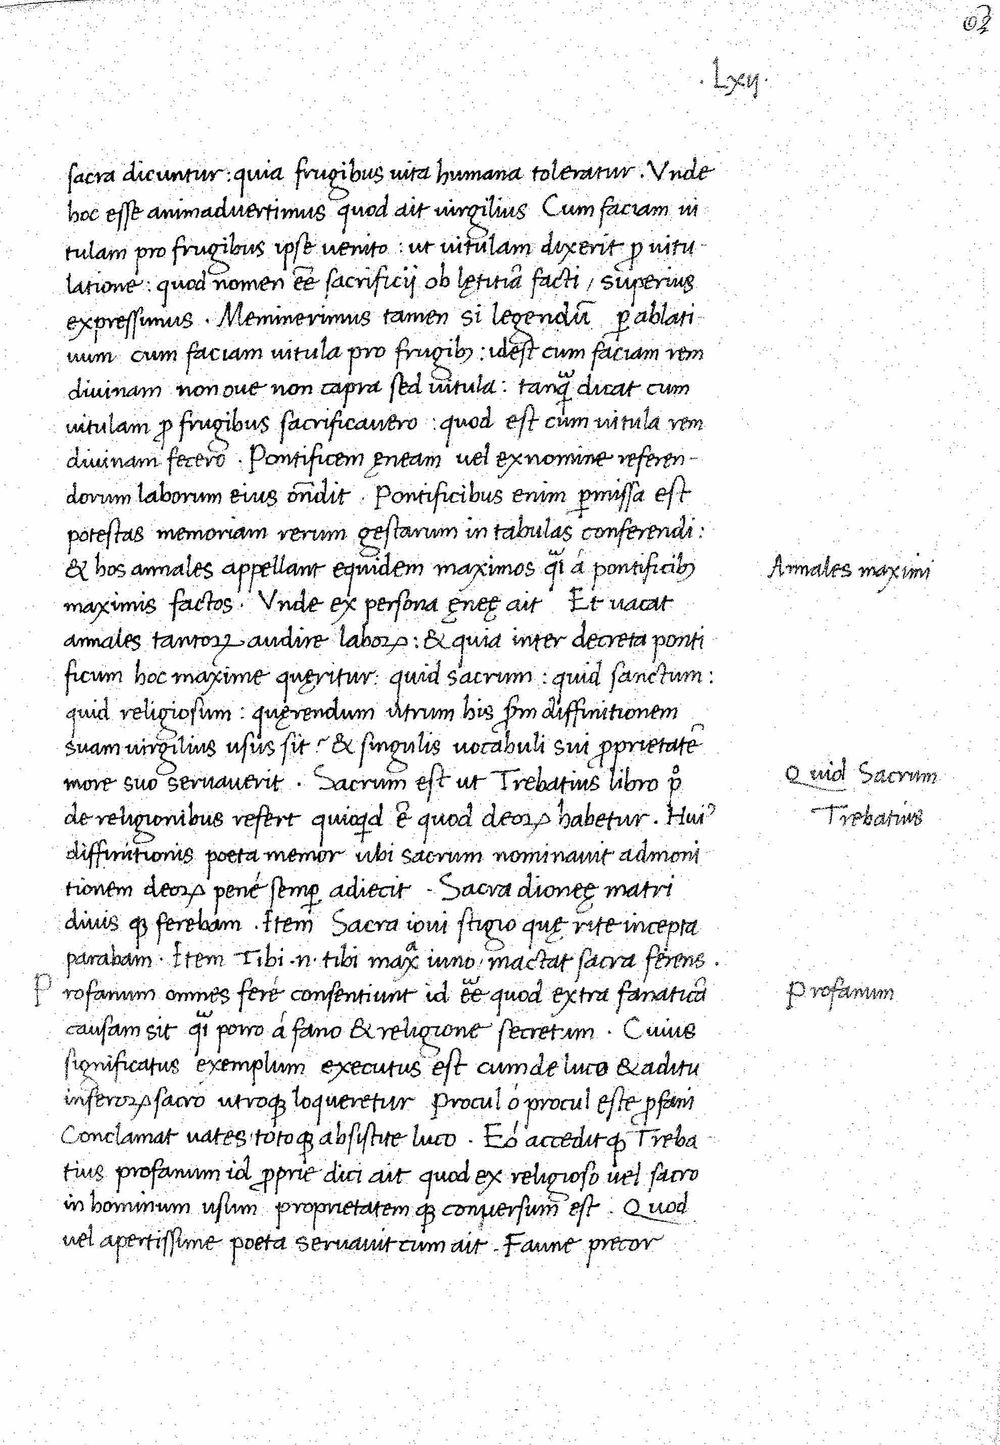 62
· Lxij ·
sacra dicuntur : quia frugibus uita humana toleratur . Vnde
hoc esse animaduertimus quod ait uirgilius Cum faciam ui
tulam pro frugibus ipse uenito : ut uitulam dixerit ꝓ uitu-
latione : quod nomen eē sacrificij ob lętitiā facti / superius
expressimus . Meminerimus tamen si legendū ꝑ ablati
uum cum faciam uitula pro frugibꝫ : idest cum faciam rem
diuinam non oue non capra sed uitula : tanqͣ dicat cum
uitulam ꝓ frugibus sacrificauero : quod est cum uitula rem
diuinam fecero . Pontificem ęneam uel ex nomine referen-
dorum laborum eius oñdit . Pontificibus enim ꝑmissa est
potestas memoriam rerum gestarum in tabulas conferendi :
& hos annales appellant equidem maximos qͣi á pontificibꝫ
Annales maximi
maximis factos . Vnde ex persona ęnęę ait Et uacat
annales tantoꝝ audire laboꝝ : & quia inter decreta ponti
ficum hoc maxime quęritur : quid sacrum : quid sanctum :
quid religiosum : quęrendum utrum his ꝓm diffinitionem
suam uirgilius usus sit ? & singulis uocabuli sui ꝓprietatē
more suo seruauerit . Sacrum est ut Trebatius libro pͦ
Quid Sacrum
de religionibus refert quicqͥd ē quod deoꝝ habetur . Huiꝰ
Trebatius
diffinitionis poeta memor ubi sacrum nominauit admoni
tionem deoꝝ pené semꝑ adiecit . Sacra dioneę matri
diuis qꝫ ferebam . Item Sacra ioui stigio quę rite incepta
parabam . Item Tibi .n. tibi maxͣ iuno / mactat sacra ferens .
Profanum omnes fere consentiunt id eē quod extra fanaticā
Profanum
causam sit qͣi porro á fano & religione secretum . Cuius
significatus exemplum executus est cum de luco & aditu
inferoꝝ sacro utroqꝫ loqueretur Procul ó procul este ꝓfani
Conclamat uates / totoqꝫ absistite luco . Eó accedit qꝫ Treba
tius profanum id ꝓprie dici ait quod ex religioso uel sacro
in hominum usum proprietatem qꝫ conuersum est . Quod
uel apertissime poeta seruauit cum ait . Faune precor